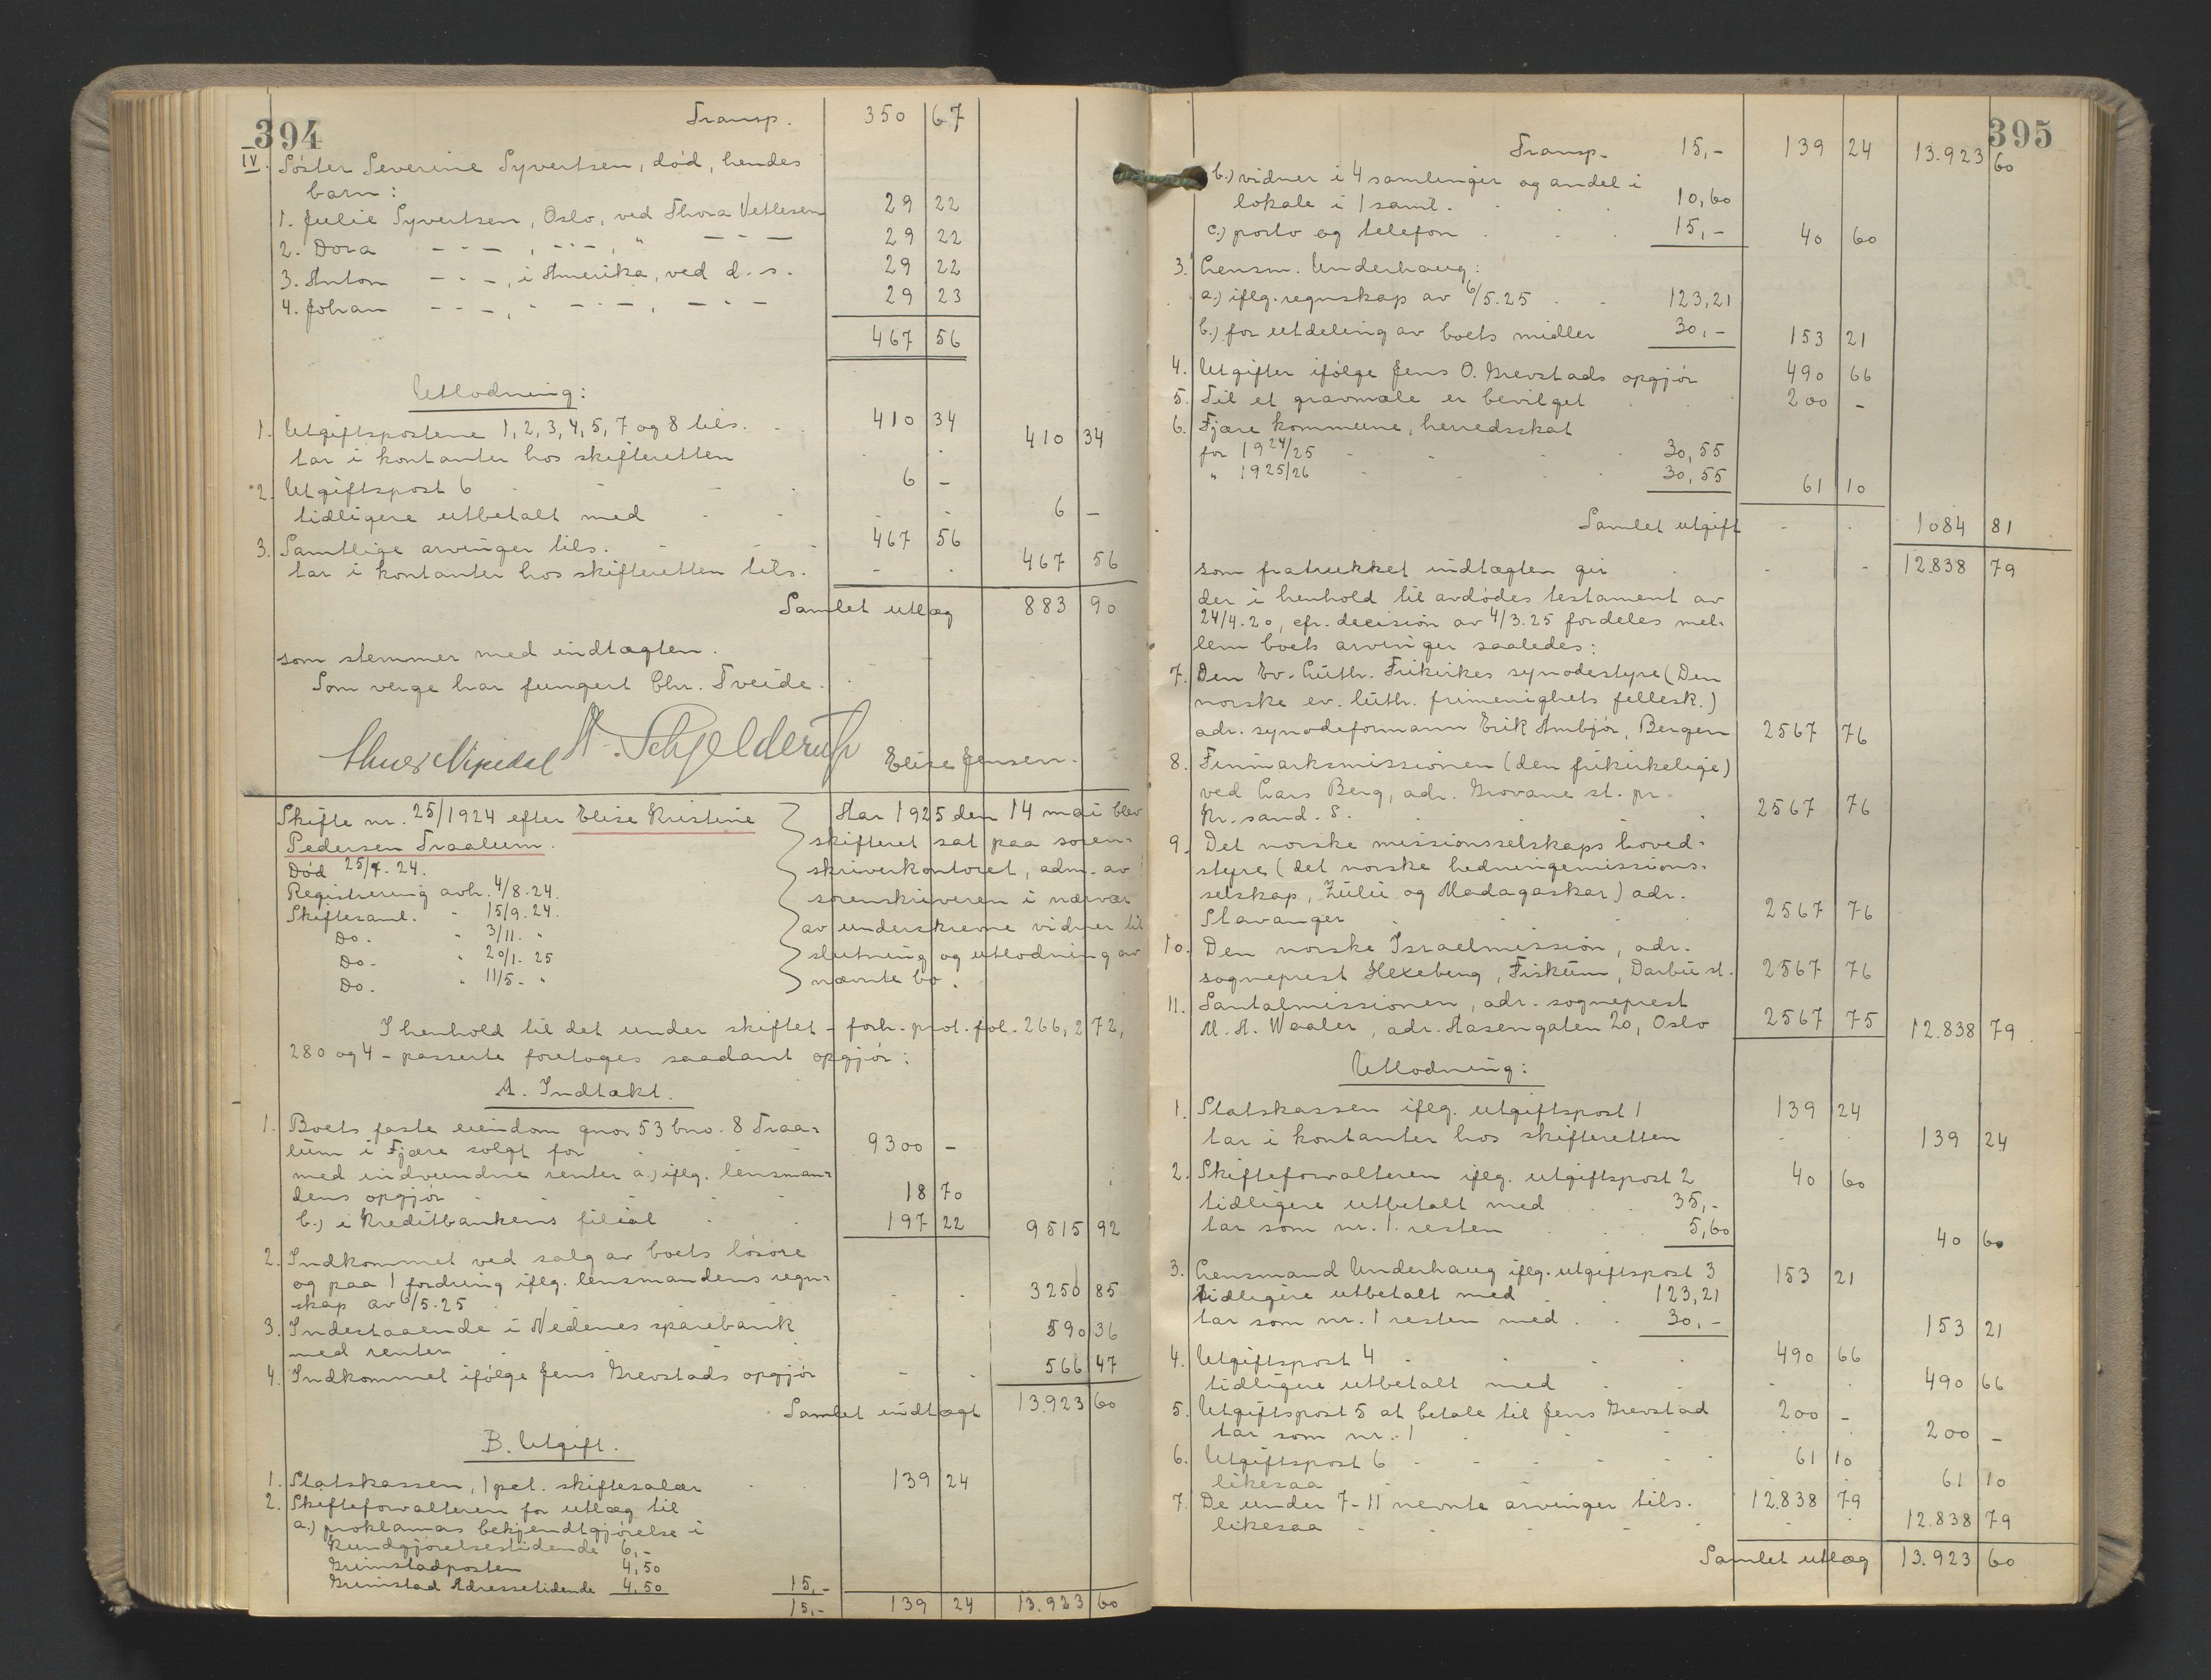 394
Transp. 350 67
IV. Søster Severine Syvertsen, død, hendes
barn:
1. Julie Syvertsen, Oslo, ved Thora Vetlesen 29 22
2. Dora - - - , - - - , " - - - 29 22
3. Anton - - - , i Amerika, ved d. s. 29 22
4. Johan - - - , " - - - , - - - 29 23
467 56
Utlodning:
1. Utgiftspostene 1, 2, 3, 4, 5, 7 og 8 tils. 410 34
tar i kontanter hos skifteretten 410 34
2. Utgiftspost 6 6 -
tidligere utbetalt med 6 -
3. Samtlige arvinger tils. 467 56
tar i kontanter hos skifteretten tils. 467 56
Samlet utlæg 883 90
som stemmer med indtægten.
Som verge har fungert Chr. Tveide.
Schjelderup Elise Jensen.
Skifte nr. 25/1924 efter Elise Kristine
Pedersen Traalum.
Død 25/7. 24.
Registrering avh. 4/8. 24.
Skiftesaml. " 15/9. 24.
Do. " 3/11. "
Do. " 20/1. 25
Do. " 11/5. "
Aar 1925 den 14 mai blev
skifteret sat paa soren-
skriverkontoret, adm. av
sorenskriveren i nærvær
av underskrevne vidner til
slutning og utlodning av
nævnte bo.
I henhold til det under skiftet - forh. prot. fol. 266, 272,
280 og 4 - passerte foretoges saadant opgjør:
A. Indtækt.
1. Boets faste eiendom gno. 53 bno. 8 Traa-
lum i Fjære solgt for 9300 -
med indvundne renter a.) iflg. lensman-
dens opgjør 18 70
b.) i Kreditbankens filial 197 22 9515 92
2. Indkommet ved salg av boets løsøre
og paa 1 fordring iflg. lensmandens regn-
skap av 6/5. 25 3250 85
3. Indestaaende i Nedenes sparebank
med renter 590 36
4. Indkommet ifølge Jens Grevstads opgjør 566 47
Samlet indtægt 13.923 60
B. Utgift.
1. Statskassen, 1 pct. skiftesalær 139 24
2. Skifteforvalteren for utlæg til
a.) proklamas bekjendtgjørelse i
Kundgjørelsestidende 6,-
Grimstadposten 4,50
Grimstad Adressetidende 4,50 15,-
15,- 139 24 13.923 60
395
Transp. 15,- 139 24 13.923 60
b.) vidner i 4 samlinger og andel i
lokale i 1 saml. 10,60
c.) porto og telefon 15,- 40 60
3. Lensm. Underhaug:
a.) iflg. regnskap av 6/5. 25 123,21
b.) for utdeling av boets midler 30,- 153 21
4. Utgifter ifølge Jens O. Grevstads opgjør 490 66
5. Til et gravmæle er bevilget 200 -
6. Fjære kommune, herredsskat
for 1924/25 30,55
" 1925/26 30,55 61 10
Samlet utgift 1084 81
som fratrukket indtægten gir 12.838 79
der i henhold til avdødes testament av
24/4. 20, cfr. decision av 4/3. 25 fordeles mel-
lem boets arvinger saaledes:
7. Den Ev. Luth. Frikirkes synodestyre (Den
norske ev. luth. frimenighets fellesk.)
adr. synodeformann Erik Ambjør, Bergen 2567 76
8. Finmarksmissionen (den frikirkelige)
ved Lars Berg, adr. Grovane st. pr.
Kr.sand. S. 2567 76
9. Det norske missionsselskaps hoved-
styre (det norske hedningemissions-
selskap, Zulu og Madagaskar) adr.
Stavanger 2567 76
10. Den norske Israelmission, adr.
sogneprest Hexeberg, Fiskum, Darbu st. 2567 76
11. Santalmissionen, adr. sogneprest
M. A. Waaler, adr. Aasengaten 20, Oslo 2567 75 12.838 79
Utlodning:
1. Statskassen iflg. utgiftspost 1 139 24
tar i kontanter hos skifteretten 139 24
2. Skifteforvalteren iflg. utgiftspost 2 40 60
tidligere utbetalt med 35,-
tar som nr. 1. resten 5,60
40 60
3. Lensmand Underhaug iflg. utgiftspost 3 153 21
tidligere utbetalt med 123,21
tar som nr. 1 resten med 30,- 153 21
4. Utgiftspost 4 490 66
tidligere utbetalt med 490 66
5. Utgiftspost 5 at betale til Jens Grevstad 200 -
tar som nr. 1 200 -
6. Utgiftspost 6 61 10
likesaa 61 10
7. De under 7-11 nevnte arvinger tils. 12.838 79
likesaa 12.838 79
Samlet utlæg 13.923 60